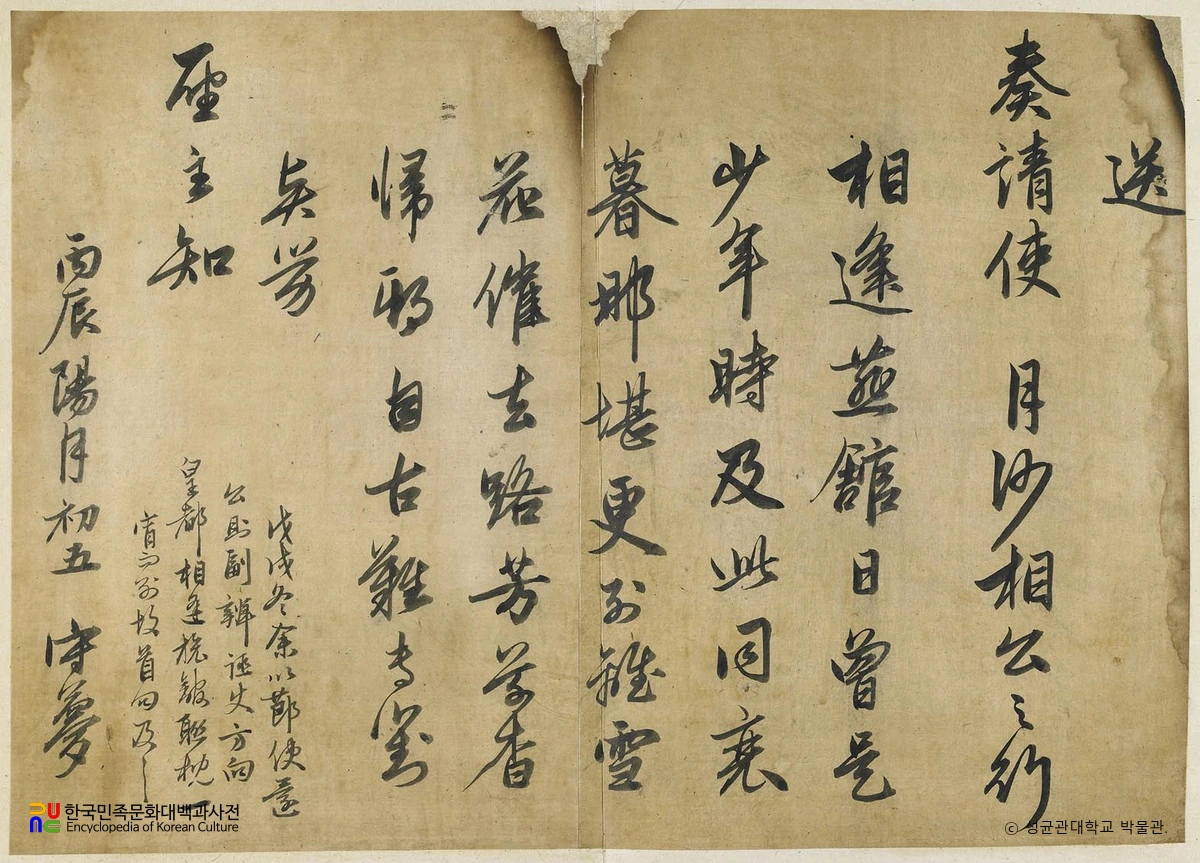 送
奏請使 月沙相公之行
相逢燕館日曾是
少年時及此同衰
暮那堪更別離雪
花催去路芳草杳
歸期自古難專對
賢勞
聖主知
戊戌冬余以節使還
公則副辨誣使方向
皇都相逢旅館聯枕一
宵而別故首句及之
丙辰陽月初五 守夢
한국민족문화대백과사전
Encyclopedia of Korean Culture
ⓒ 성균관대학교 박물관.